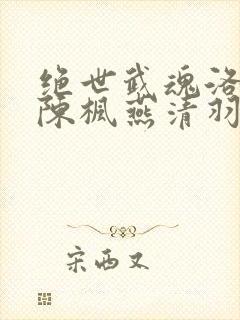 绝世武魂洛
陈楓燕清羽
宋西又